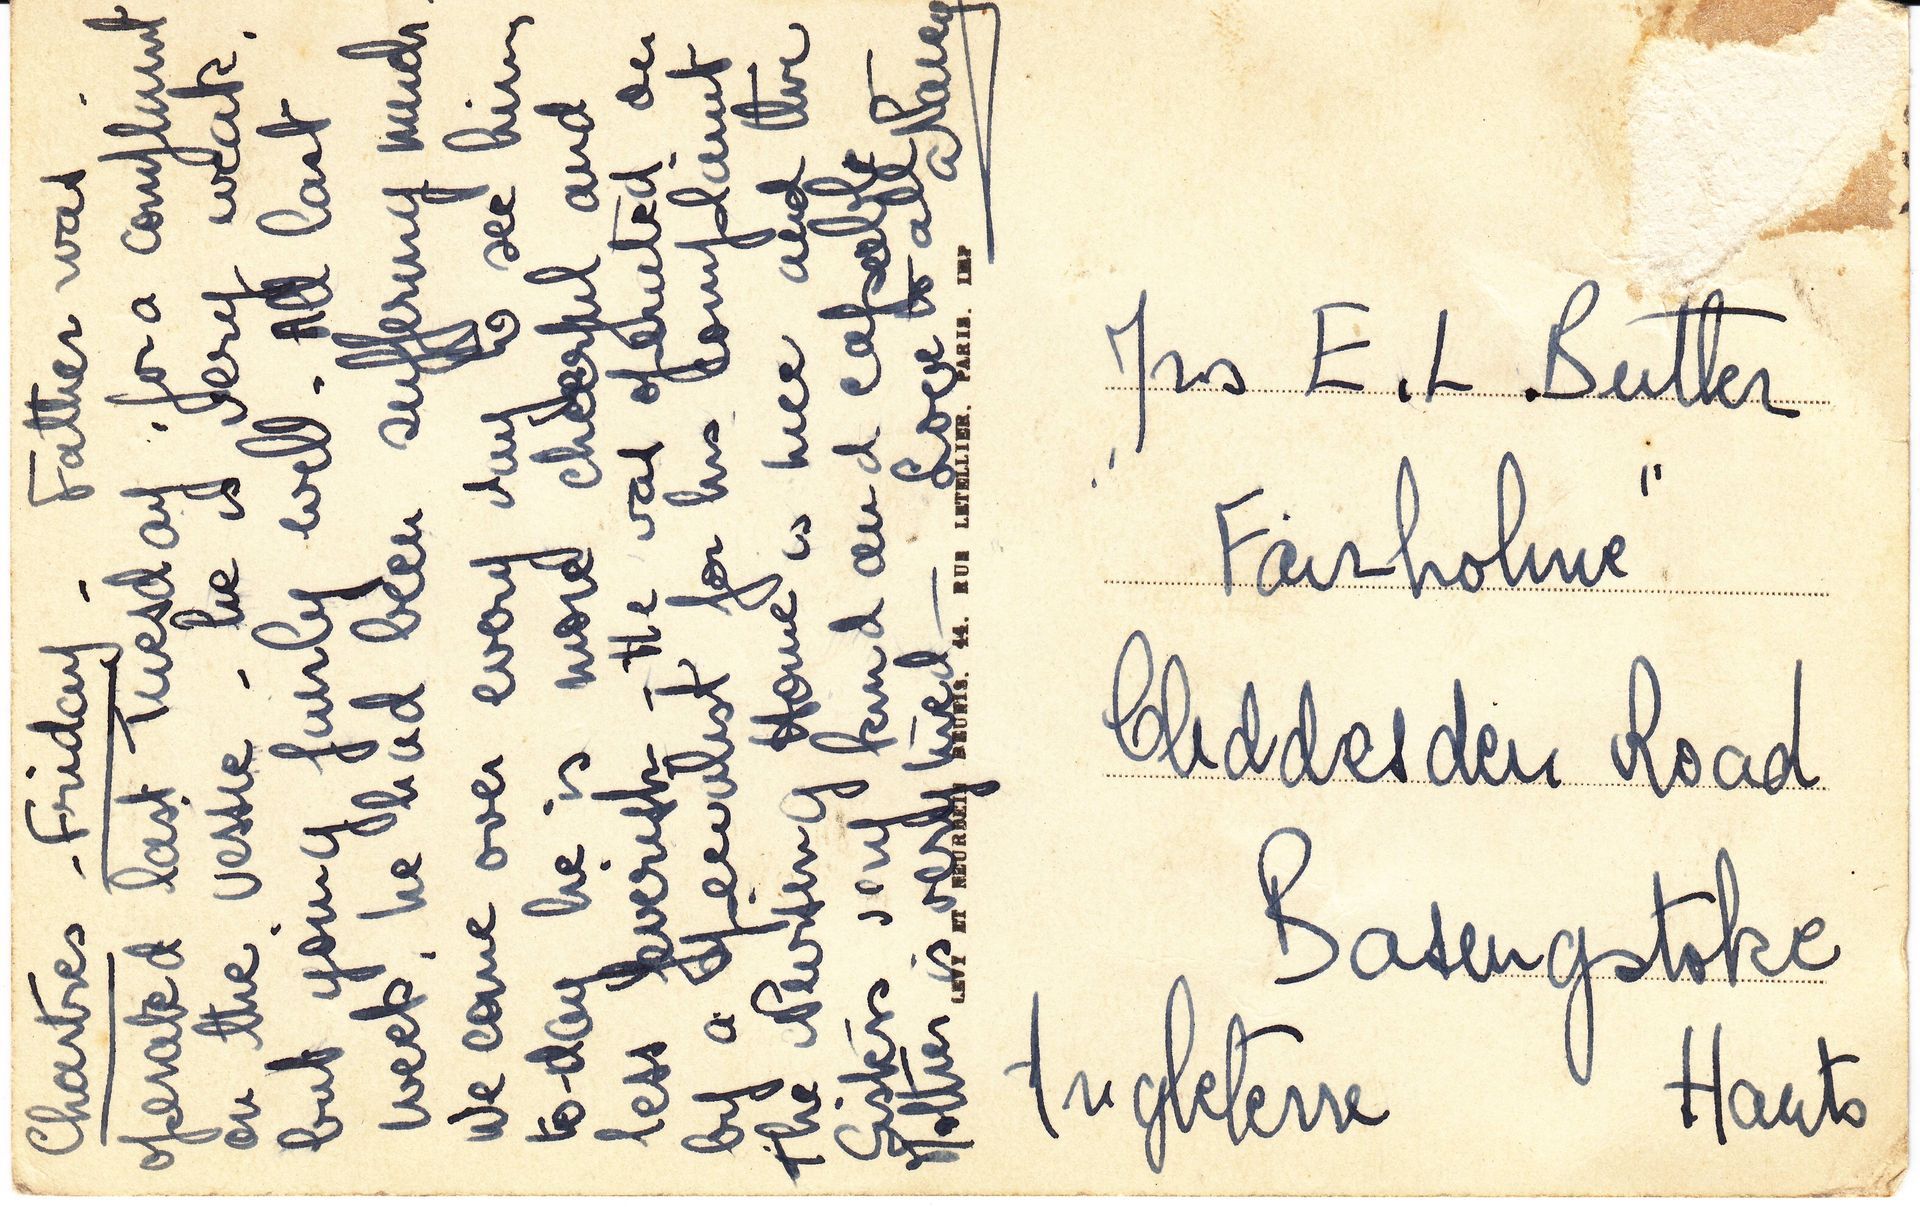 Chartres - Friday - Father was
operated last Tuesday, for a complaint
in the vessie - he is very weak.
but going fairly well - All last
week, he had been suffering much
We come over every day to see him
to-day he is more cheerful and
less feverish - He was operated on
by a specialist for his complaint
the Nursing Home is nice and the
Sisters very kind and capable
Mother is very tired - Love to all
LEVY ET NEURDEIN REUNIS, 44, RUE LETELLIER, PARIS. IMP
Mrs E. L. Butler
"Fairholme"
Cliddesden Road
Basingstoke
Ingleterre Hants